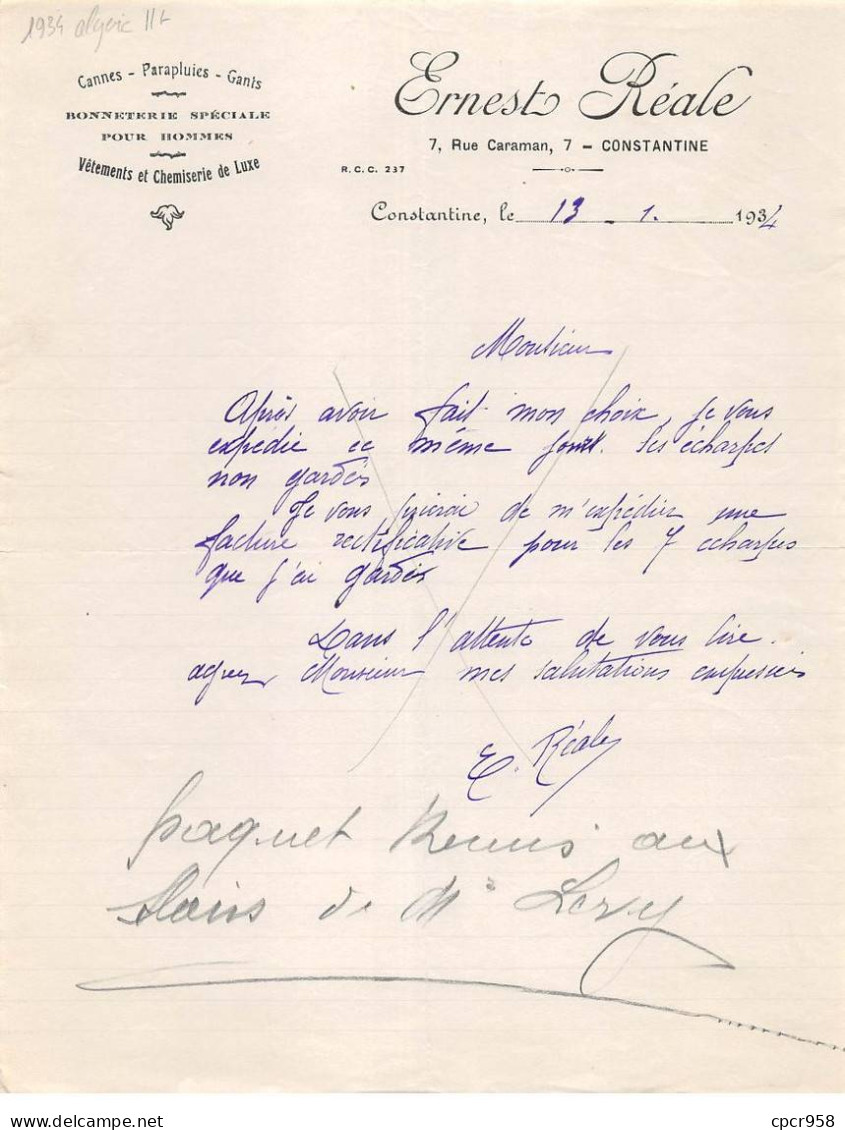 1934 algerie
Cannes - Parapluies - Gants
BONNETERIE SPÉCIALE
POUR HOMMES
Vêtements et Chemiserie de Luxe
Ernest Réale
7, Rue Caraman, 7 - CONSTANTINE
R.C.C. 237
Constantine, le 13 - 1. 1934
Monsieur
Après avoir fait mon choix, je vous
expédie ce même jour. les écharpes
non gardés
Je vous prierai de m'expédier une
facture rectificative pour les 7 écharpes
que j'ai gardés
Dans l'attente de vous lire.
agréez Monsieur mes salutations empressées
E. Réale
paquet Remis aux
Mains de Mr Levy
delcampe.net
cpcr958